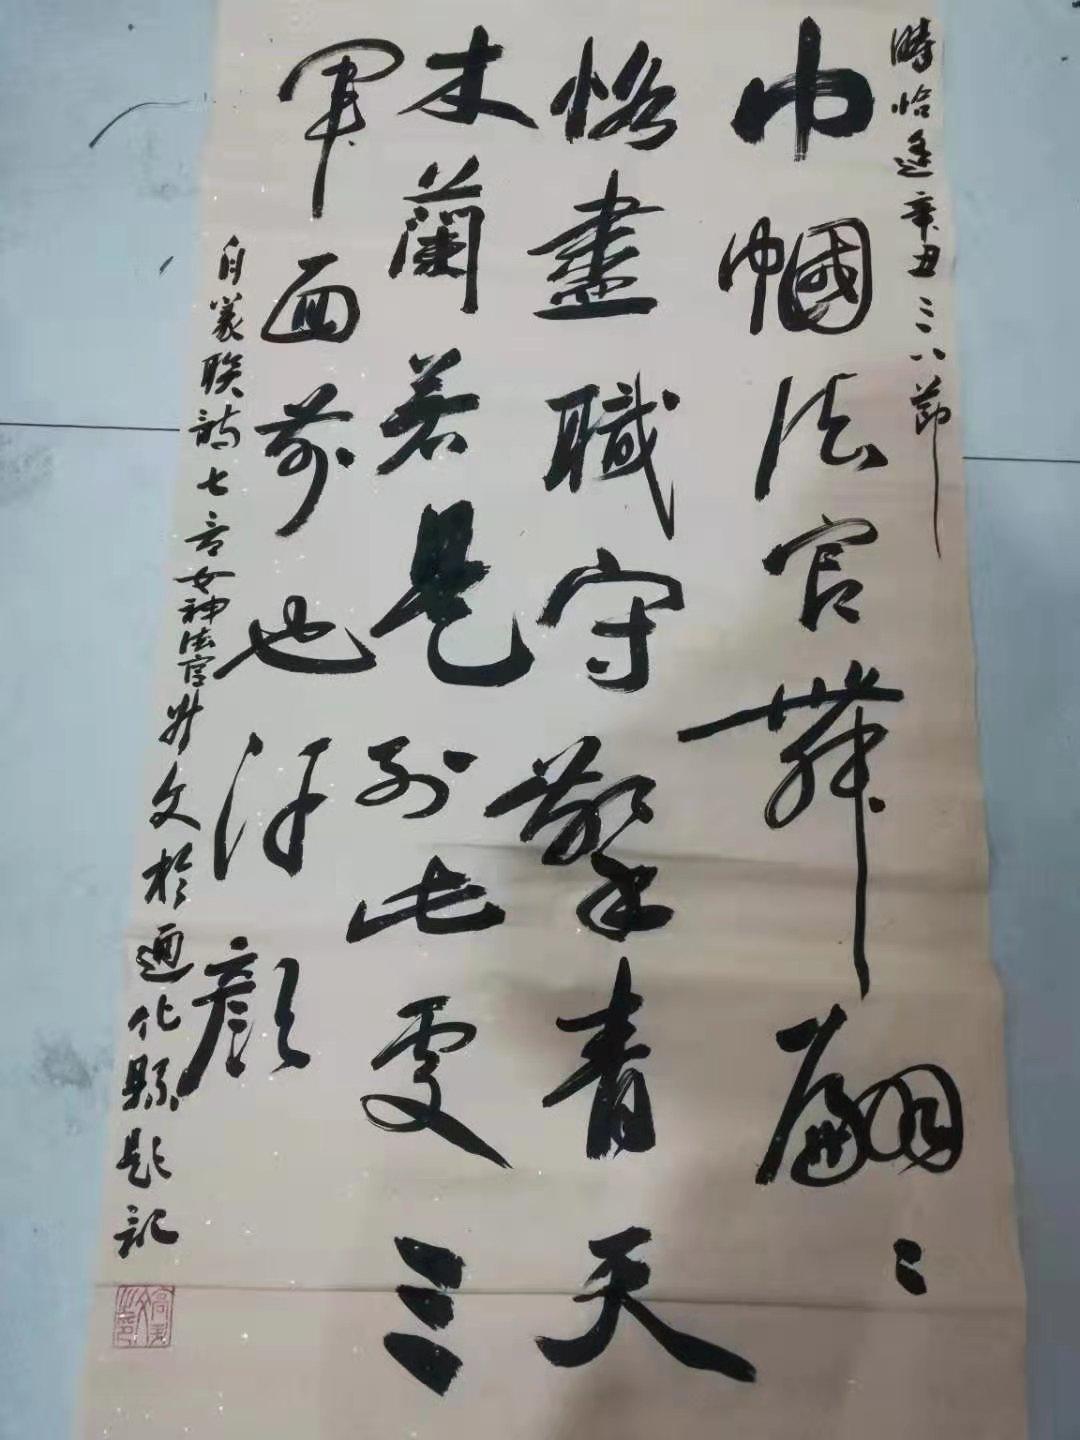 時恰逢辛丑三八節
巾幗法官舞翩〻
恪盡職守擎青天
木蘭若是列此處三
軍面前也汗顏
自联詩七言女神法官文於通化縣題記